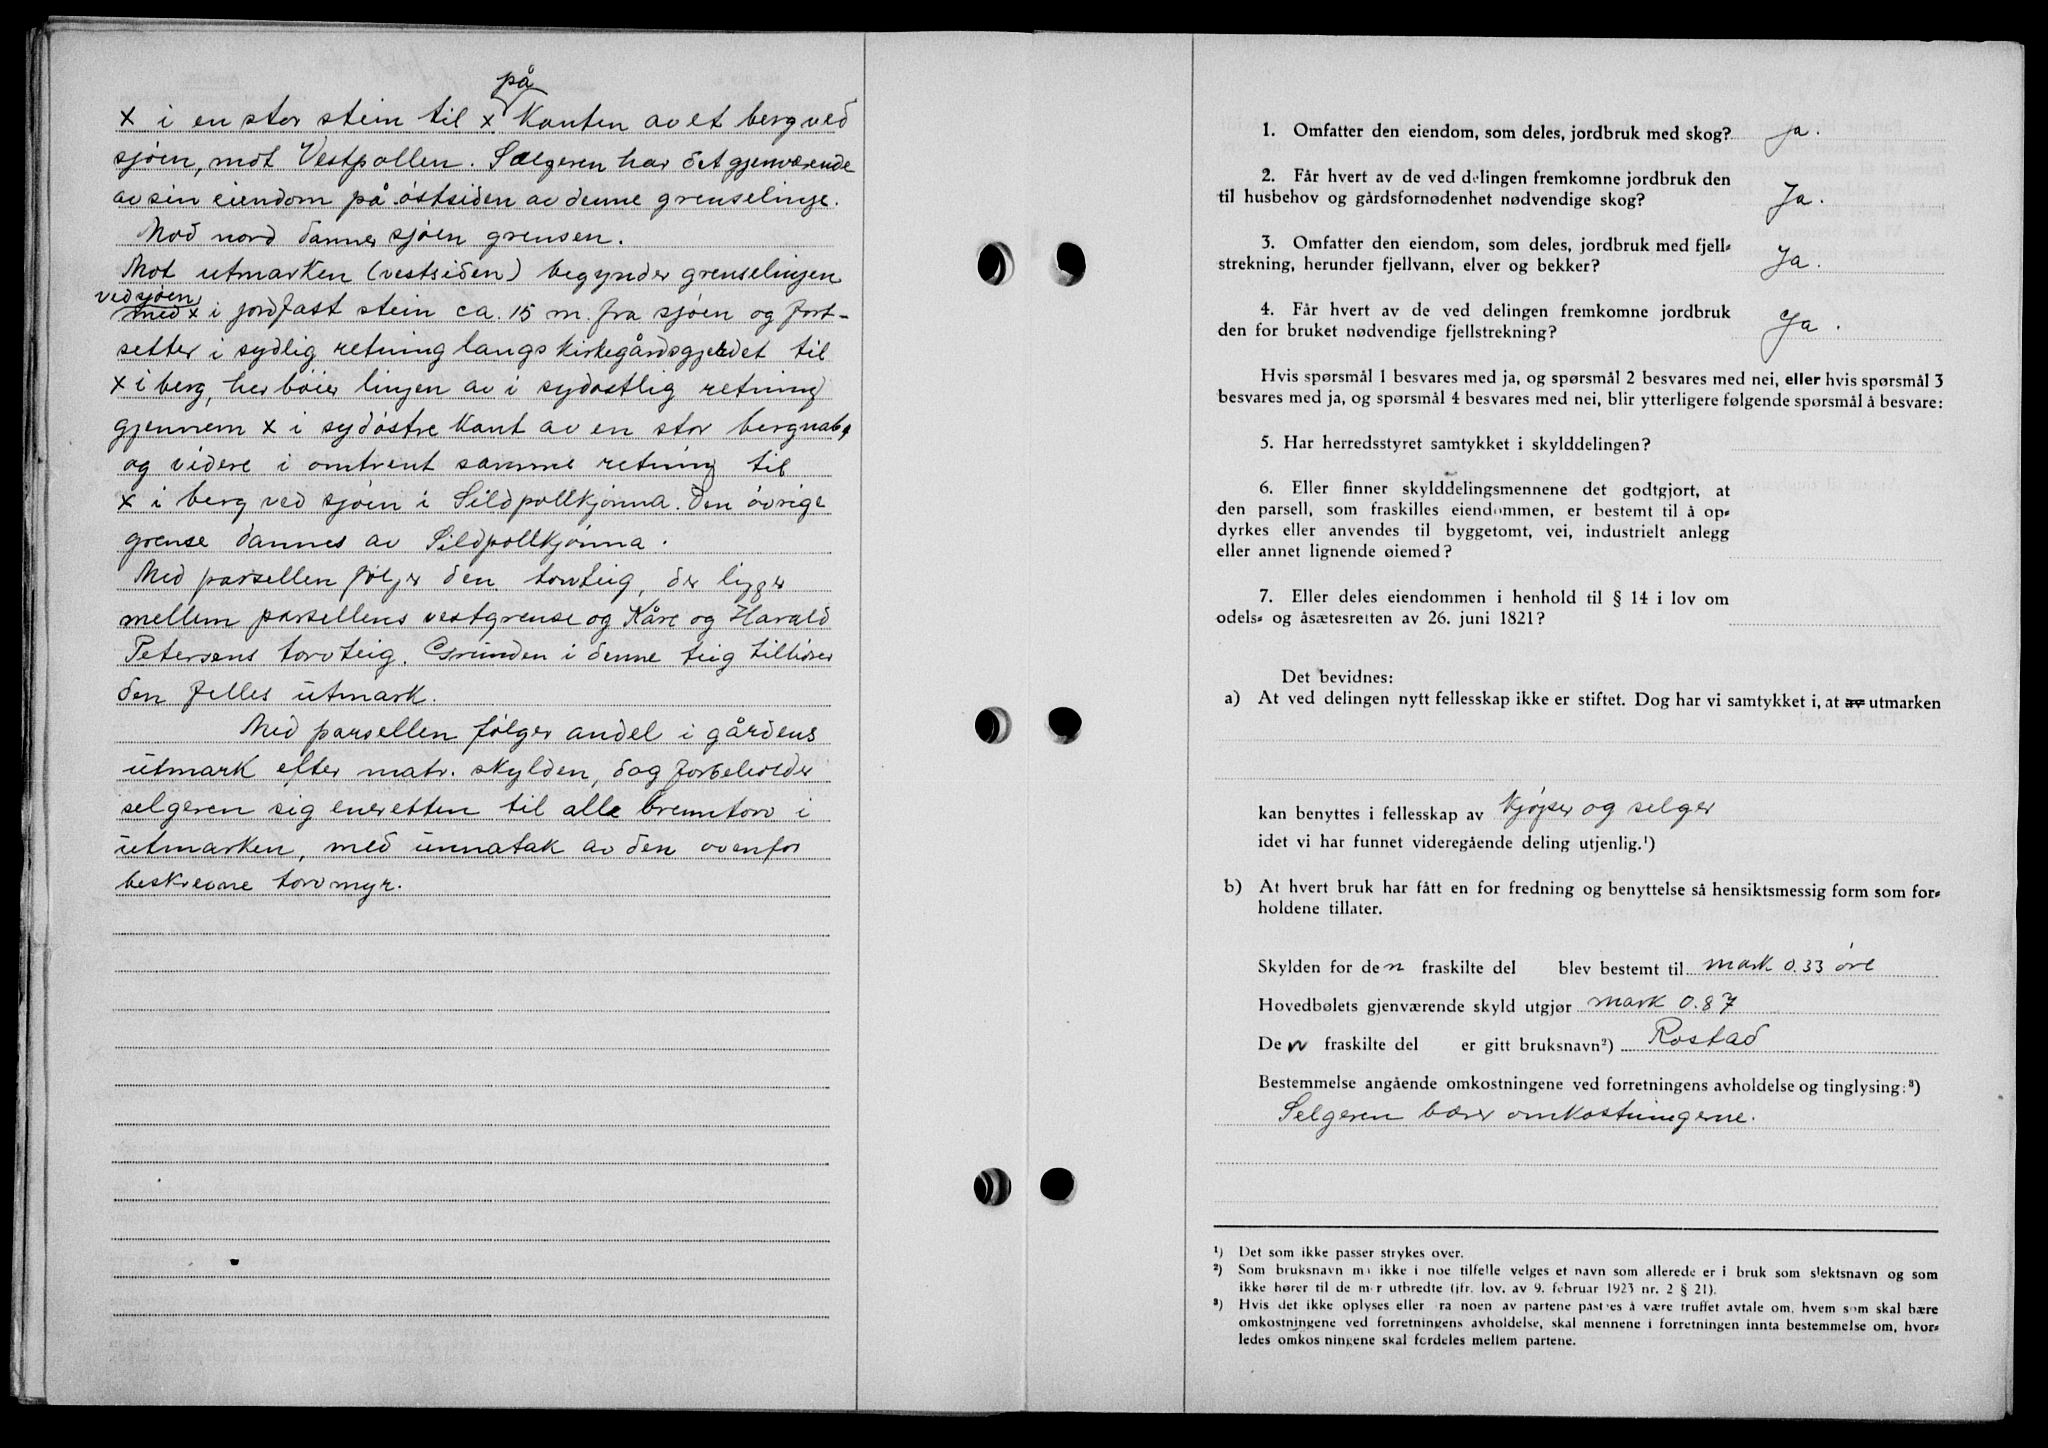 på
x i en stor stein til x Kanten av et berg ved
sjøen, mot Vestpollen. Sælgeren har det gjenværende
av sin eiendom på østsiden av denne grenselinje.
Mod nord danner sjøen grensen.
Mot utmarken (vestsiden) begynder grenselinjen
ved sjøen
med x i jordfast stein ca. 15 m. fra sjøen og fort-
setter i sydlig retning langs Kirkegårdsgjerdet til
x i berg, her bøier linjen av i sydøstlig retning
gjennem x i sydøstre Kant av en stor bergnabb,
og videre i omtrent samme retning til
x i berg ved sjøen i Sildpollkjønna. Den øvrige
grense dannes av Sildpollkjønna.
Med parsellen følger den torvteig, der ligger
mellem parsellens vestgrense og Kåre og Harald
Petersens torvteig. Grunden i denne teig tilhører
den felles utmark.
Med parsellen følger andel i gårdens
utmark efter matr. skylden, dog forbeholder
selgeren sig eneretten til alle brenntorv i
utmarken, med unnatak av den ovenfor
beskrevne torvmyr.
1. Omfatter den eiendom, som deles, jordbruk med skog? Ja.
2. Får hvert av de ved delingen fremkomne jordbruk den
til husbehov og gårdsfornødenhet nødvendige skog? Ja.
3. Omfatter den eiendom, som deles, jordbruk med fjell-
strekning, herunder fjellvann, elver og bekker? Ja.
4. Får hvert av de ved delingen fremkomne jordbruk
den for bruket nødvendige fjellstrekning? Ja.
Hvis spørsmål 1 besvares med ja, og spørsmål 2 besvares med nei, eller hvis spørsmål 3
besvares med ja, og spørsmål 4 besvares med nei, blir ytterligere følgende spørsmål å besvare:
5. Har herredsstyret samtykket i skylddelingen?
6. Eller finner skylddelingsmennene det godtgjort, at
den parsell, som fraskilles eiendommen, er bestemt til å op-
dyrkes eller anvendes til byggetomt, vei, industrielt anlegg
eller annet lignende øiemed?
7. Eller deles eiendommen i henhold til § 14 i lov om
odels- og åsætesretten av 26. juni 1821?
Det bevidnes:
a) At ved delingen nytt fellesskap ikke er stiftet. Dog har vi samtykket i, at av utmarken
kan benyttes i fellesskap av kjøper og selger
idet vi har funnet videregående deling utjenlig.¹)
b) At hvert bruk har fått en for fredning og benyttelse så hensiktsmessig form som for-
holdene tillater.
Skylden for den fraskilte del blev bestemt til mark 0.33 øre
Hovedbølets gjenværende skyld utgjør mark 0.87
Den fraskilte del er gitt bruksnavn²) Rostad
Bestemmelse angående omkostningene ved forretningens avholdelse og tinglysing:³)
Selgeren bærer omkostningerne.
¹) Det som ikke passer strykes over.
²) Som bruksnavn må ikke i noe tilfelle velges et navn som allerede er i bruk som slektsnavn og som
ikke hører til de mer utbredte (jfr. lov. av 9. februar 1923 nr. 2 § 21).
³) Hvis det ikke oplyses eller fra noen av partene påstyes å være truffet avtale om, hvem som skal bære
omkostningene ved forretningens avholdelse, skal mennene i forretningen innta bestemmelse om, hvor-
ledes omkostningene skal fordeles mellem partene.